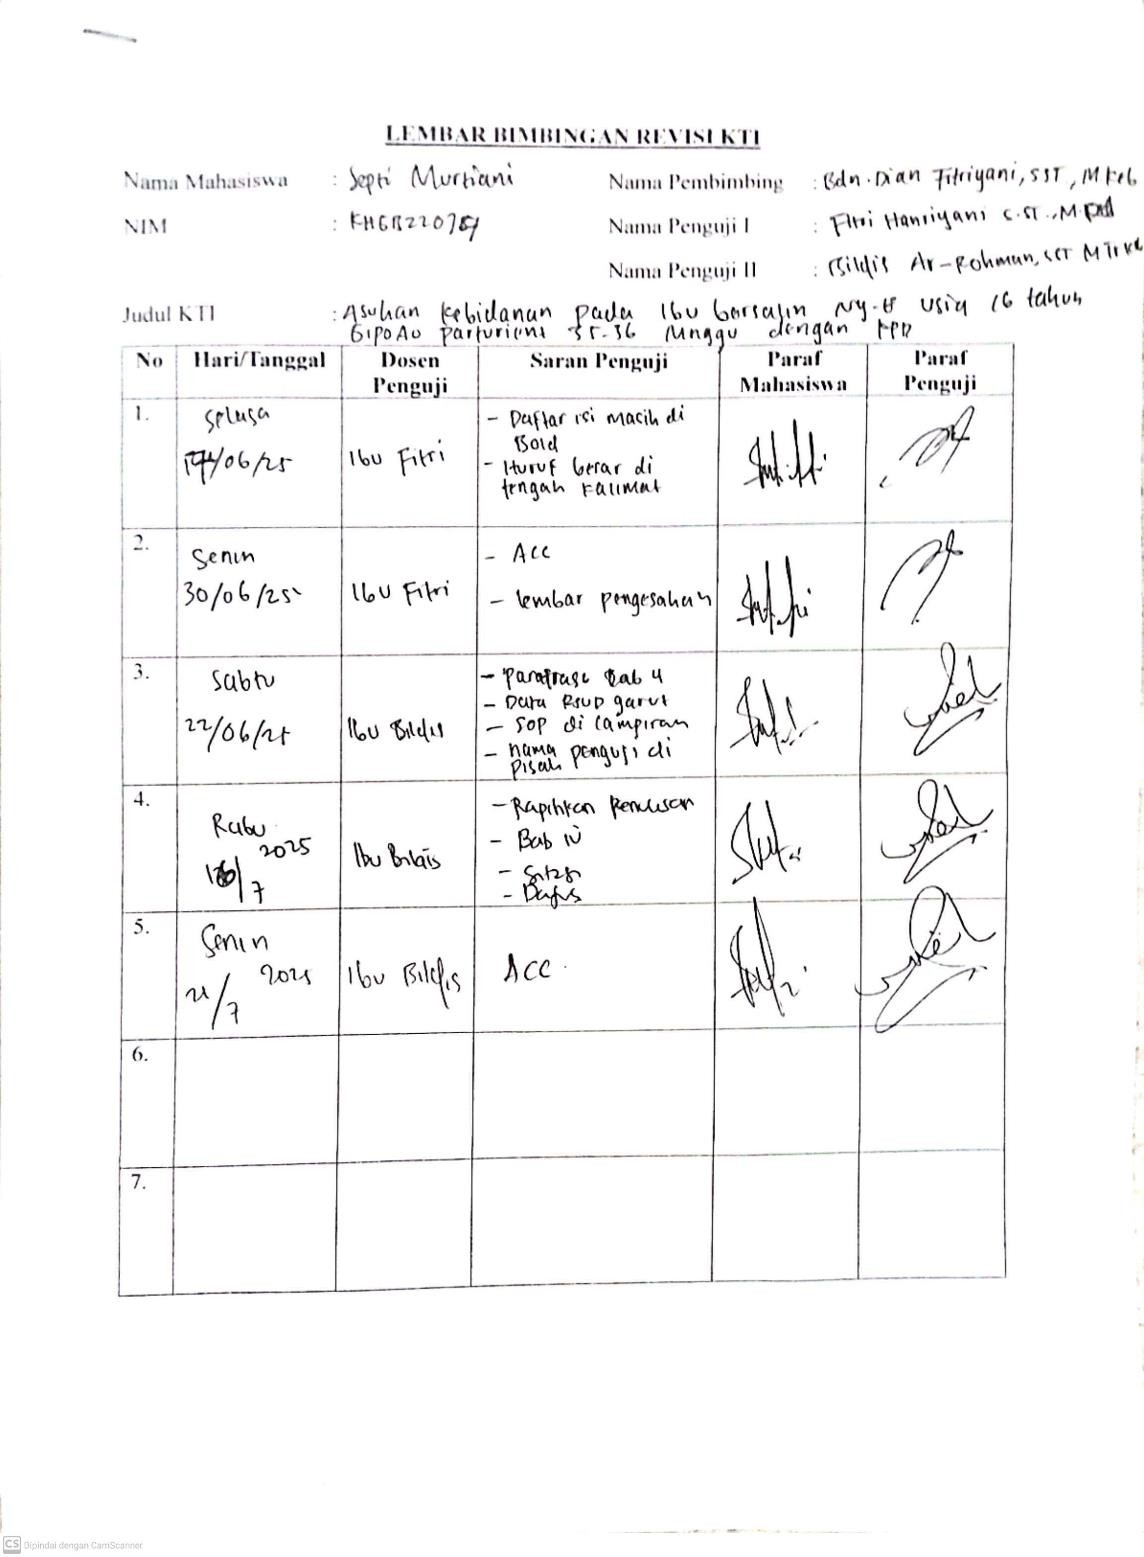 LEMBAR BIMBINGAN REVISI KTI
Nama Mahasiswa : Septi Murtiani
Nama Pembimbing : Bdn. Dian Fitriyani, SST, M Keb
NIM :
Nama Penguji I : Fitri Hanriyani S.ST., M.Pd
Nama Penguji II : Bildis Ar-Rohman, SST
Judul KTI : Asuhan Kebidanan pada Ibu bersalin Ny. usia 16 tahun
G1P0A0 parturient 35-36 minggu dengan KPD
No Hari/Tanggal Dosen Penguji Saran Penguji Paraf Mahasiswa Paraf Penguji
1.
Selasa
/06/25
Ibu Fitri
- Daftar isi masih di
Bold
- Huruf besar di
tengah kalimat
2.
Senin
30/06/25
Ibu Fitri
- Acc
- lembar pengesahan
3.
Sabtu
22/06/25
Ibu Bildis
- Parafrase Bab 4
- Data RSUD garut
- SOP di lampiran
- nama penguji di
pisah
4.
Rabu
2025
/7
Ibu Bildis
- Rapihkan Penulisan
- Bab IV
- Sitasi
- Dapus
5.
Senin
21/7 2025
Ibu Bildis
ACC.
6.
7.
CS Dipindai dengan CamScanner